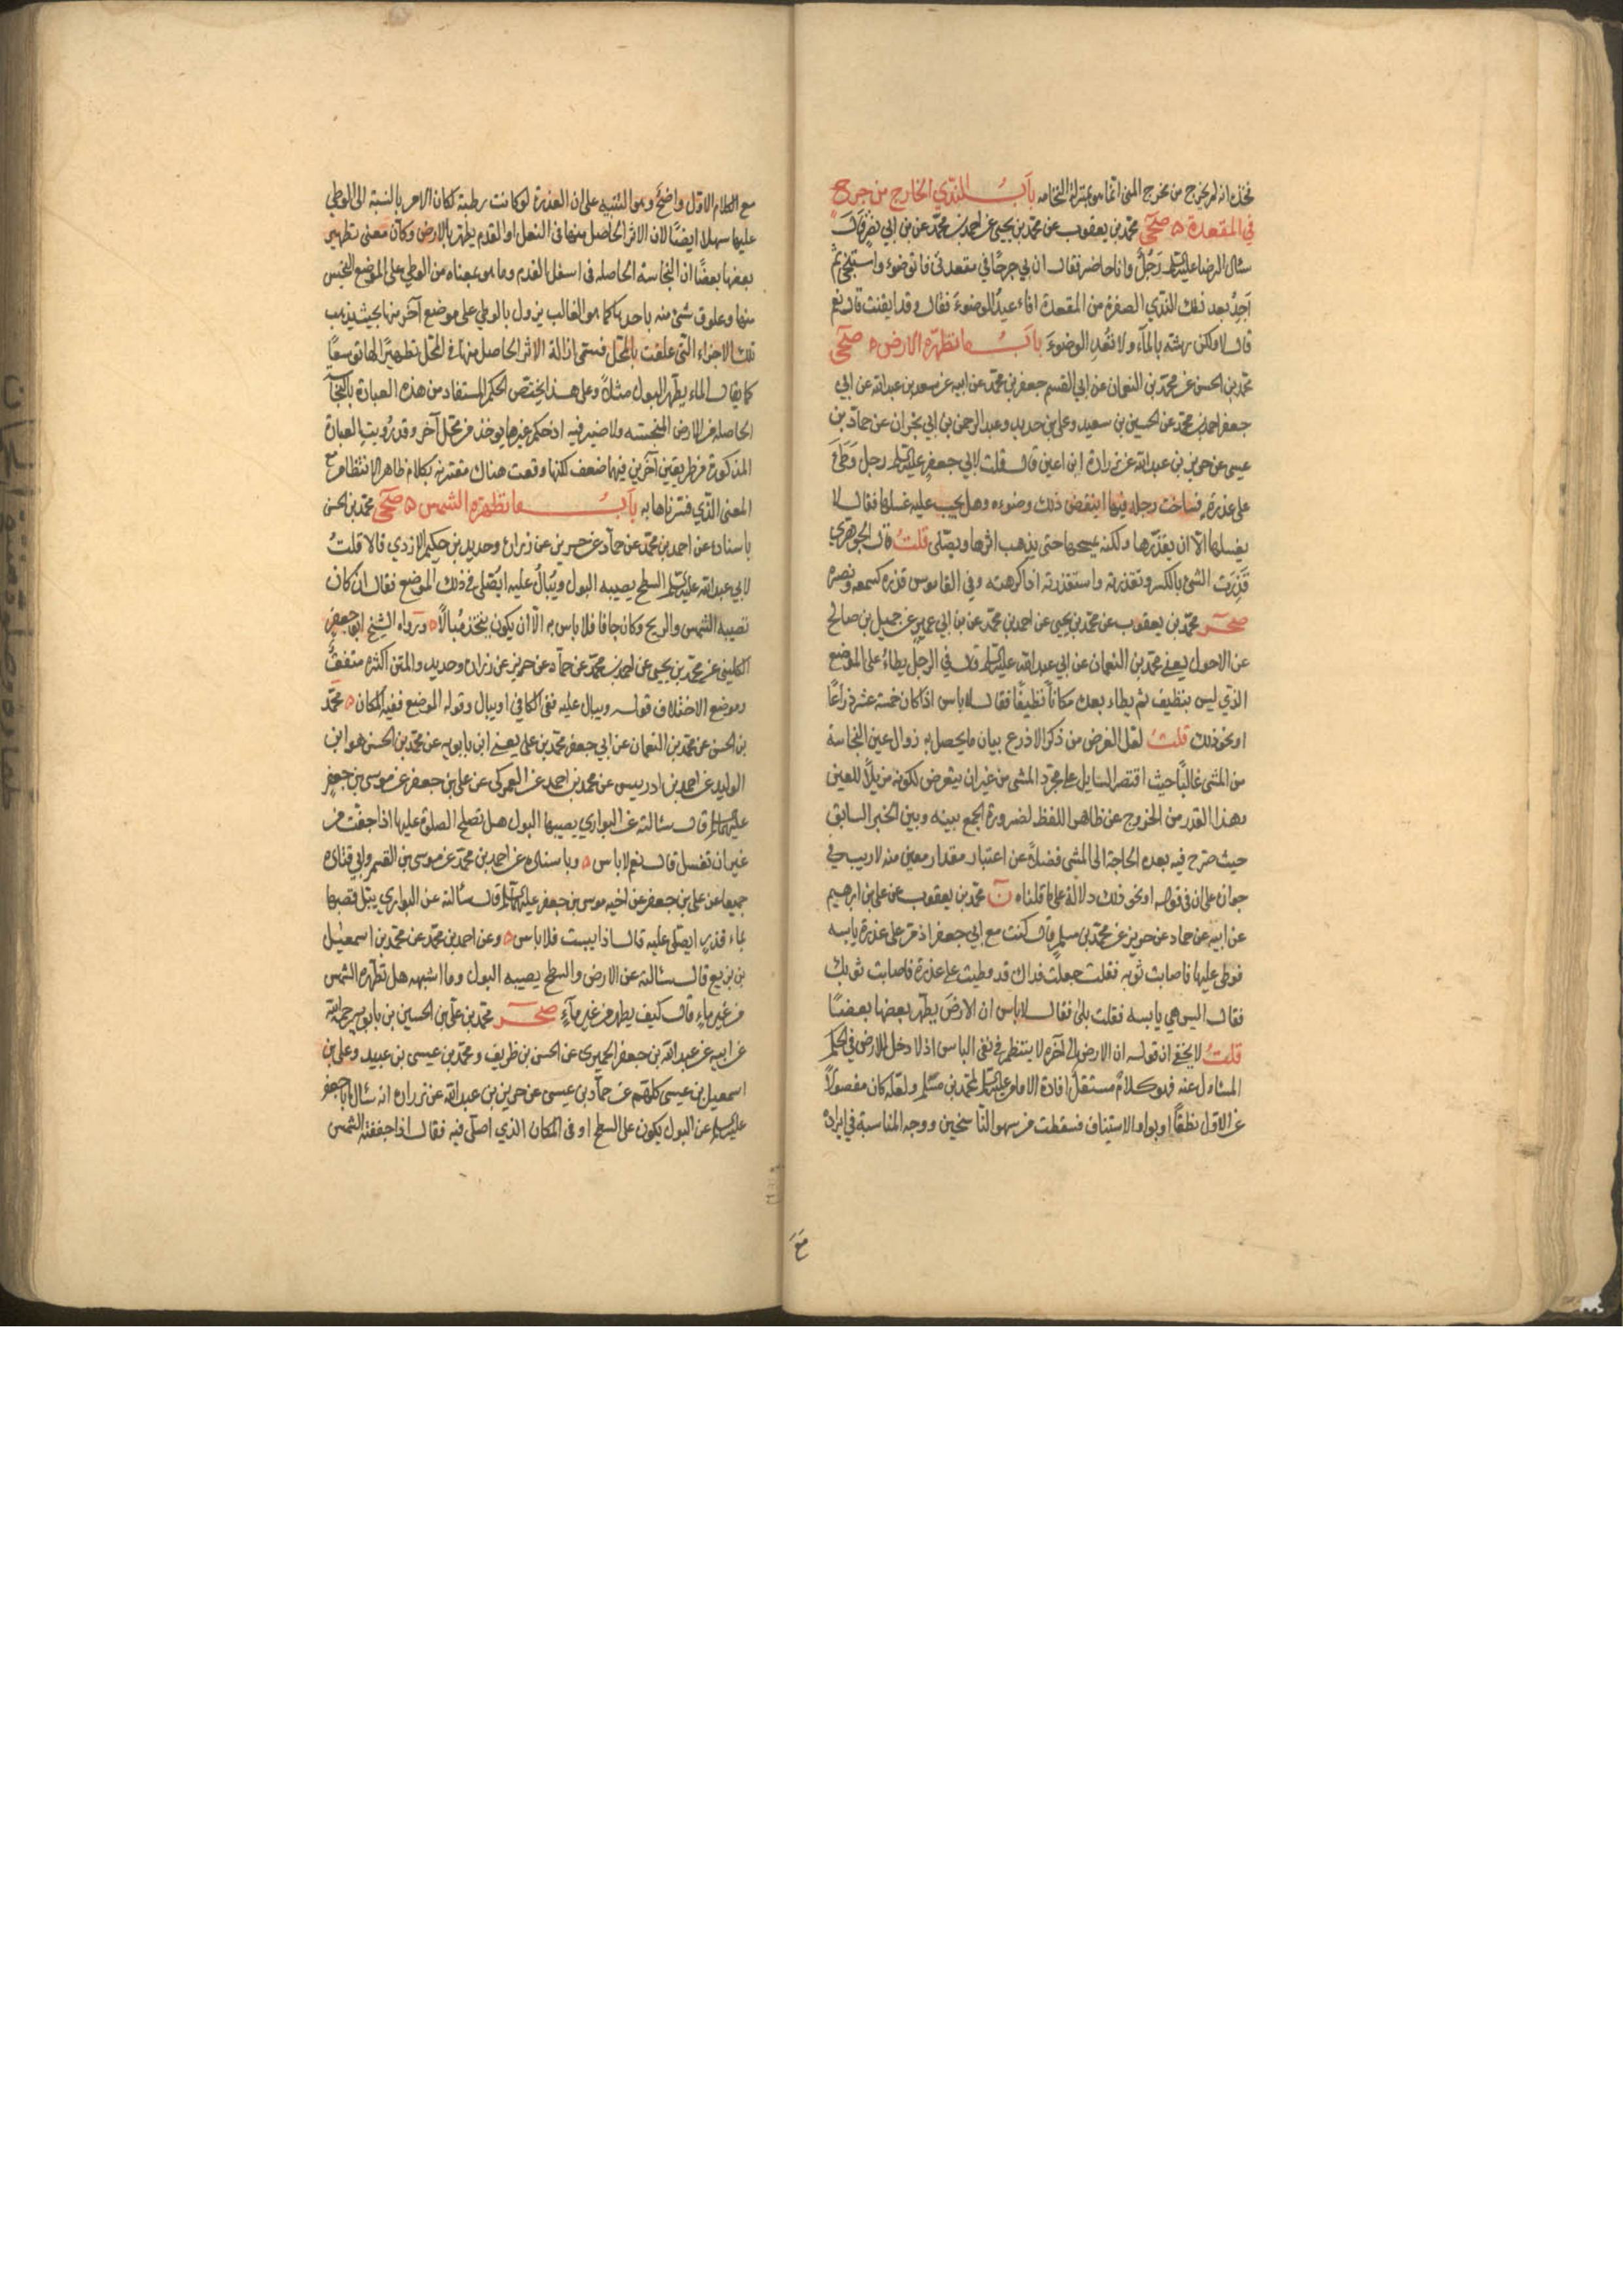 فخذه انه لم يخرج من مخرج المنى انما هو بمنزلة النخامه باب الندي الخارج من جرح
في المقعدة صحى محمد بن يعقوب عن محمد بن يحيى عن احمد بن محمد عن بن ابي نصر قال
سئال الرضا عليه السلام رجل وانا حاضر فقال ان بي جرحا في مقعدتي فاتوضوء واستنجي ثم
اجد بعد ذلك الندي الصفرة من المقعدة افاعيد الوضوء فقال وقد ايقنت قال نعم
قال لا ولكن رشه بالماء ولا تعد الوضوء باب ما تطهره الارض صحى
محمد بن الحسن عن محمد بن النعمان عن ابي القسم جعفر بن محمد عن ابيه عن سعد بن عبدالله عن ابي
جعفر احمد بن محمد عن الحسين بن سعيد وعلى بن حديد وعبد الرحمن بن ابي نجران عن حماد بن
عيسى عن حريز بن عبدالله عن زرارة ابن اعين قال قلت لابي جعفر عليه السلام رجل وطئ
على عذرة فساخت رجله فيها اينقض ذلك وضوءه وهل يجب عليه غسلها فقال لا
يغسلها الا ان يقذرها ولكنه يمسحها حتى يذهب اثرها ويصلى قلت قال الجوهري
قذرت الشئ بالكسر وتقذرته واستقذرته اذا كرهته وفي القاموس قذره كسمعه ونصره
صحر محمد بن يعقوب عن محمد بن يحيى عن احمد بن محمد عن بن ابي عمير عن جميل بن صالح
عن الاحول يعنى محمد بن النعمان عن ابي عبدالله عليه السلام قال في الرجل يطاء على الموضع
الذي ليس بنظيف ثم يطاء بعده مكانا نظيفا فقال لاباس اذا كان خمسة عشر ذراعا
او نحو ذلك قلت لعل الغرض من ذكر الاذرع بيان ما يحصل به زوال عين النجاسة
من المشى غالبا حيث اقتصر السايل على مجرد المشى من غير ان يتعرض لكونه مزيلا للعين
وهذا القدر من الخروج عن ظاهر اللفظ لضرورة الجمع بينه وبين الخبر السابق
حيث صرح فيه بعدم الحاجة الى المشى فضلا عن اعتبار مقدار معين منه لا ريب في
جوازه على ان في قوله او نحو ذلك دلالة على ما قلناه ن محمد بن يعقوب عن على بن ابرهيم
عن ابيه عن حماد عن حريز عن محمد بن مسلم قال كنت مع ابي جعفر اذ مر على عذرة يابسه
فوطى عليها فاصابت ثوبه فقلت جعلت فداك قد وطيت على عذرة فاصابت ثوبك
فقال اليس هي يابسه فقلت بلى فقال لاباس ان الارض يطهر بعضها بعضا
قلت لا يخفى ان قوله ان الارض الى آخره لا ينتظم في نفى الباس اذ لا دخل للارض في الحكم
المسئول عنه فهو كلام مستقل افادة الامام عليه السلام لمحمد بن مسلم ولعله كان مفصولا
عن الاول نطقا او بواو الاستيناف فسقطت من سهو الناسخين ووجه المناسبة في ايراده
مع
مع الكلام الاول واضح وهو التنبيه على ان العذرة لو كانت رطبة لكان الامر بالنسبة الى الوطي
عليها سهلا ايضا لان الاثر الحاصل منها في النعل او القدم يطهر بالارض وكان معنى تطهير
بعضها بعضا ان النجاسة الحاصله فى اسفل القدم وما هو بمعناه من الوطي على الموضع النجس
منها وعلوق شئ منه باحدهما كما هو الغالب يزول بالوطي على موضع آخر منها بحيث يذهب
تلك الاجزاء التي علقت بالمحل فسمى ازالة الاثر الحاصل منها في المحل تطهيرا لها توسعا
كما يقال الماء يطهر البول مثلا وعلى هذا يختص الحكم المستفاد من هذه العبارة بالنجاسة
الحاصله من الارض المنجسته ولا ضير فيه اذ حكم غيرها يوخذ من محل آخر وقد رويت العبارة
المذكورة من طريقين آخرين فيهما ضعف لكنها وقعت هناك مقترنه بكلام ظاهر الانتظام مع
المعنى الذي فسرناها به باب ما تطهره الشمس صحى محمد بن الحسن
باسناده عن احمد بن محمد عن حماد عن حريز عن زرارة وحديد بن حكيم الازدي قالا قلت
لابي عبدالله عليه السلام السطح يصيبه البول ويبال عليه ايصلى في ذلك الموضع فقال ان كان
تصيبه الشمس والريح وكان جافا فلا باس به الا ان يكون يتخذ مبالا وروراه الشيخ ابو جعفر
الكليني عن محمد بن يحيى عن احمد بن محمد عن حماد عن حريز عن زرارة وحديد والمتن اكثره متفق
وموضع الاختلاف قوله ويبال عليه ففى الكافي او يبال وقوله الموضع ففيه المكان محمد
بن الحسن عن محمد بن النعمان عن ابي جعفر محمد بن على يعنى ابن بابويه عن محمد بن الحسن هو ابن
الوليد عن احمد بن ادريس عن محمد بن احمد عن العمركى عن على بن جعفر عن موسى بن جعفر
عليهما السلام قال سئالته عن البواري يصيبها البول هل تصلح الصلوة عليها اذا جفت من
غير ان تغسل قال نعم لاباس وباسناده عن احمد بن محمد عن موسى بن القسم وابي قتاده
جميعا عن على بن جعفر عن اخيه موسى بن جعفر عليهما السلام قال سئالته عن البواري يبل قصبها
بماء قذر ايصلى عليه قال اذا يبست فلاباس وعن احمد بن محمد عن محمد بن اسمعيل
بن بزيع قال سئالته عن الارض والسطح يصيبه البول وما اشبهه هل تطهره الشمس
من غير ماء قال كيف يطهر من غير ماء صحر محمد بن على بن الحسين بن بابويه رحمه الله
عن ابيه عن عبدالله بن جعفر الحميرى عن الحسن بن ظريف ومحمد بن عيسى بن عبيد وعلى بن
اسمعيل بن عيسى كلهم عن حماد بن عيسى عن حريز بن عبدالله عن زرارة انه سئال ابا جعفر
عليه السلام عن البول يكون على السطح او فى المكان الذي اصلى فيه فقال اذا جففته الشمس